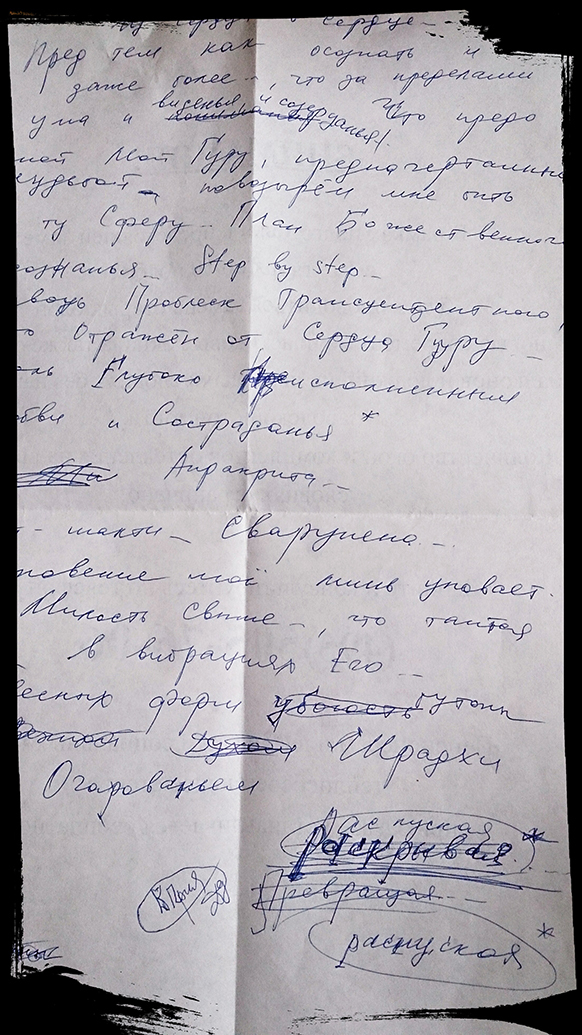 Сердце –
Пред тем как осознать и
даже более –, что за пределами
ума и виденья и созерцанья! Что предо
мной Мой Гуру, предначертанный
судьбой – мне быть
ту Сферу – План Божественного
ознанья – Step by step –
Проблеск Трансцендентного!
Отражён от Сердца Гуру –
Глубоко исполненным
бви и Состраданья *
Апракрита –
т – шакти – Сварупена –
новение моё лишь уповает.
Милость Свыше –, что таится
в вибрациях Его –
есных форм убогость
Духом Шрадхи
Очарованьем
распуская *
раскрывая
Превращая –
распуская *